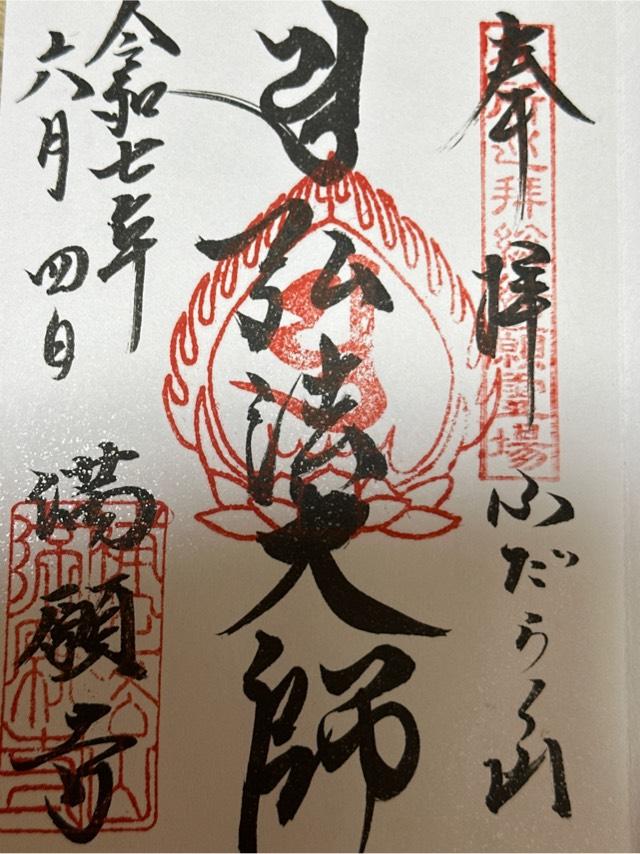 奉拝
ふだらく山
弘法大師
令和七年
六月四日
満願寺